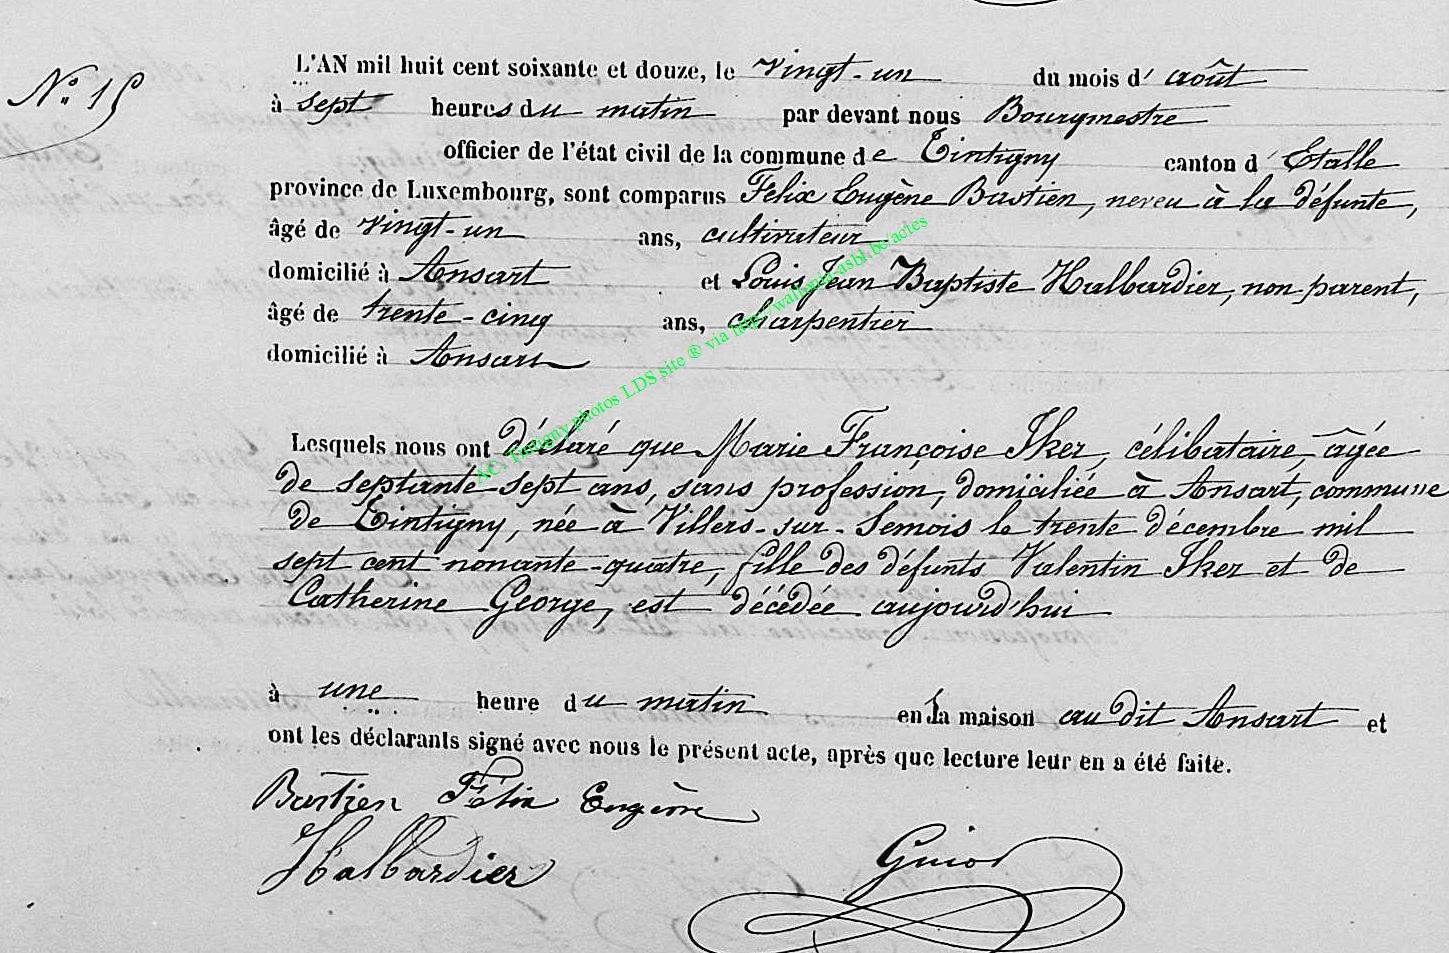 N° 15
L'AN mil huit cent soixante et douze, le vingt-un du mois d' août
à sept heures du matin par devant nous Bourgmestre
officier de l'état civil de la commune de Tintigny canton d' Etalle
province de Luxembourg, sont comparus Felix Eugène Bastien, neveu à la défunte,
âgé de vingt-un ans, cultivateur
domicilié à Ansart et Louis Jean Baptiste Halbardier, non-parent,
âgé de trente-cinq ans, charpentier
domicilié à Ansart
AC. Tintigny photos LDS site ® via http://wallonia-asbl.be/actes
Lesquels nous ont déclaré que Marie Françoise Iker, célibataire, âgée
de septante-sept ans, sans profession, domiciliée à Ansart, commune
de Tintigny, née à Villers-sur-Semois le trente décembre mil
sept cent nonante-quatre, fille des défunts Valentin Iker et de
Catherine George, est décédée aujourd'hui
à une heure du matin en la maison au dit Ansart et
ont les déclarants signé avec nous le présent acte, après que lecture leur en a été faite.
Bastien Félix Eugène
Halbardier Guiot